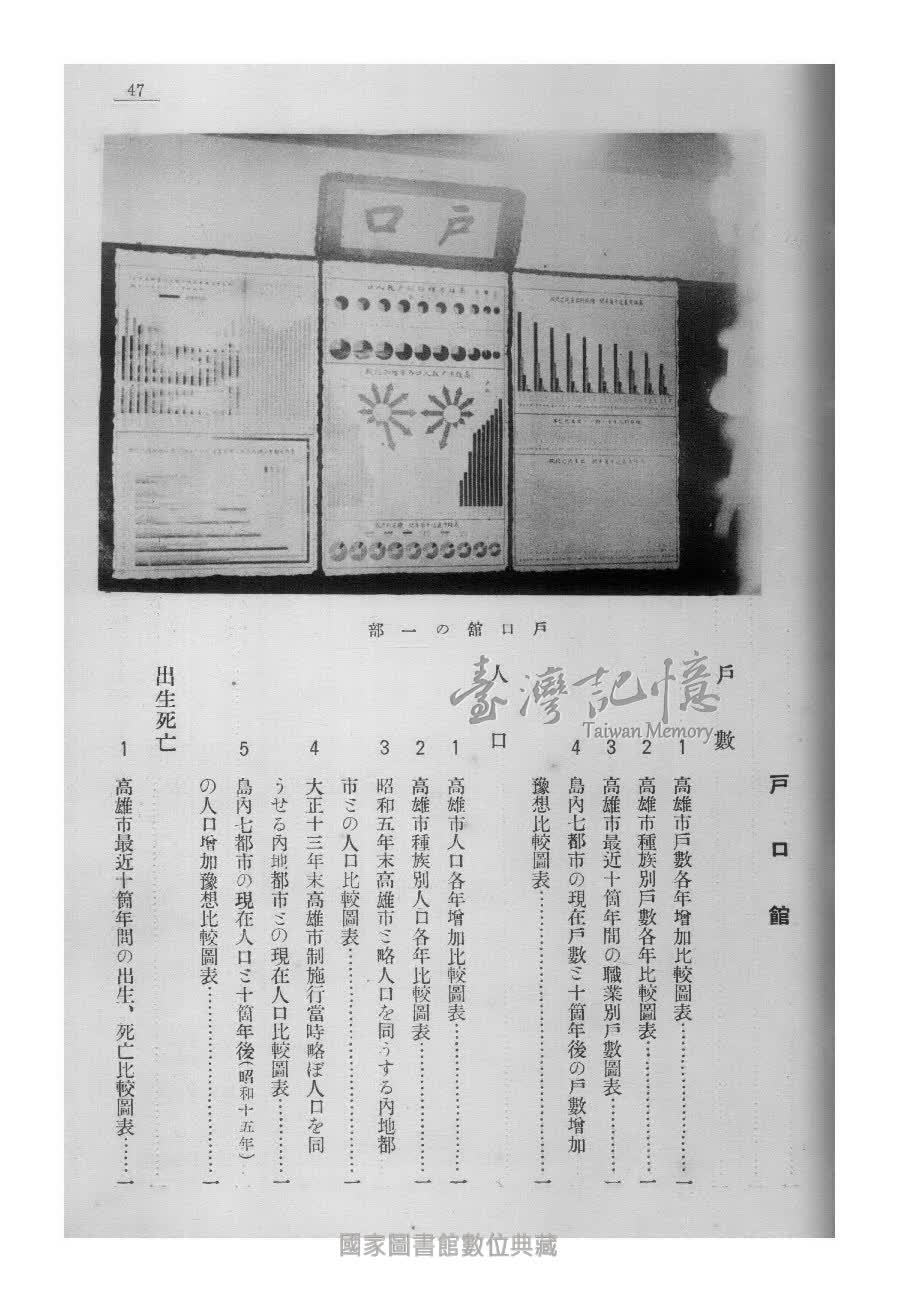 47
戶口
戶口館の一部
戶口館
戶數
1 高雄市戶數各年增加比較圖表……一
2 高雄市種族別戶數各年比較圖表……一
3 高雄市最近十箇年間の職業別戶數圖表……一
4 島內七都市の現在戶數ミ十箇年後の戶數增加
豫想比較圖表……一
人口
1 高雄市人口各年增加比較圖表……一
2 高雄市種族別人口各年比較圖表……一
3 昭和五年末高雄市ミ略人口を同うする內地都
市ミの人口比較圖表……一
4 大正十三年末高雄市制施行當時略ぼ人口を同
うせる內地都市ミの現在人口比較圖表……一
5 島內七都市の現在人口ミ十箇年後(昭和十五年)
の人口增加豫想比較圖表……一
出生死亡
1 高雄市最近十箇年間の出生、死亡比較圖表……一
臺灣記憶
Taiwan Memory
國家圖書館數位典藏